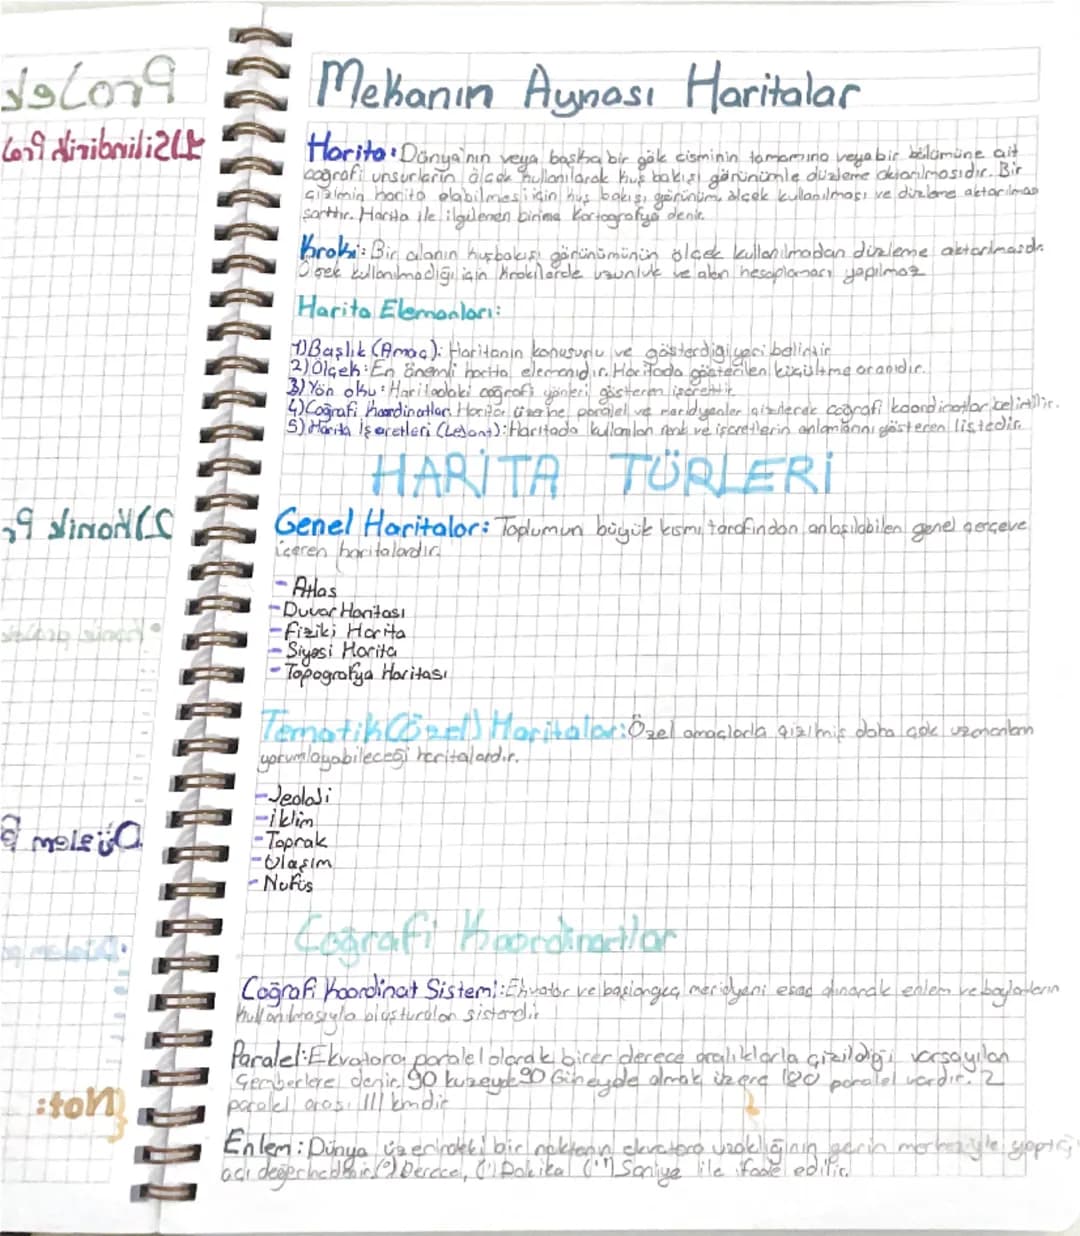 Mekanın Aynası Haritalar
Harita: Dünya'nın veya başka bir gök cisminin tamamına veya bir bölümüne ait
coğrafi unsurların ölçek kullanılarak kuş bakışı görünümle düzleme aktarılmasıdır. Bir
çizimin harita olabilmesi için kuş bakışı görünüm, ölçek kullanılması ve düzleme aktarılması
şarttır. Harita ile ilgilenen birime Kartografya denir.
Kroki: Bir alanın kuşbakışı görünümünün ölçek kullanılmadan düzleme aktarılmasıdır.
Ölçek kullanılmadığı için Krokilerde uzunluk ve alan hesaplaması yapılmaz
Harita Elemanları:
1) Başlık (Amaç): Haritanın konusunu ve gösterdiği yeri belirtir
2) Ölçek: En önemli harita elemanıdır. Haritada gösterilen küçültme oranıdır.
3) Yön oku: Haritadaki coğrafi yönleri gösteren işarettir.
4) Coğrafi Koordinatlar: Harita üzerine paralel ve meridyenler çizilerek coğrafi koordinatlar belirtilir.
5) Harita İşaretleri (Lejant): Haritada kullanılan renk ve işaretlerin anlamlarını gösteren listedir.
HARİTA TÜRLERİ
Genel Haritalar: Toplumun büyük kısmı tarafından anlaşılabilen genel çerçeve
içeren haritalardır.
- Atlas
- Duvar Haritası
- Fiziki Harita
- Siyasi Harita
- Topografya Haritası
Tematik (Özel) Haritalar: Özel amaçlarla çizilmiş daha çok uzmanların
yorumlayabileceği haritalardır.
- Jeoloji
- İklim
- Toprak
- Ulaşım
- Nüfus
Coğrafi Koordinatlar
Coğrafi Koordinat Sistemi: Ekvator ve başlangıç meridyeni esas alınarak enlem ve boylamların
kullanılmasıyla oluşturulan sistemdir
Paralel: Ekvatora paralel olarak birer derece aralıklarla çizildiği varsayılan
Çemberlere denir. 90 kuzeyde 90 Güneyde olmak üzere 180 paralel vardır. 2
paralel arası 111 kmdir
Enlem: Dünya üzerindeki bir noktanın ekvatora uzaklığının yerin merkeziyle yaptığı
açı değerine (°) Derece, (') Dakika ('') Saniye ile ifade edilir.